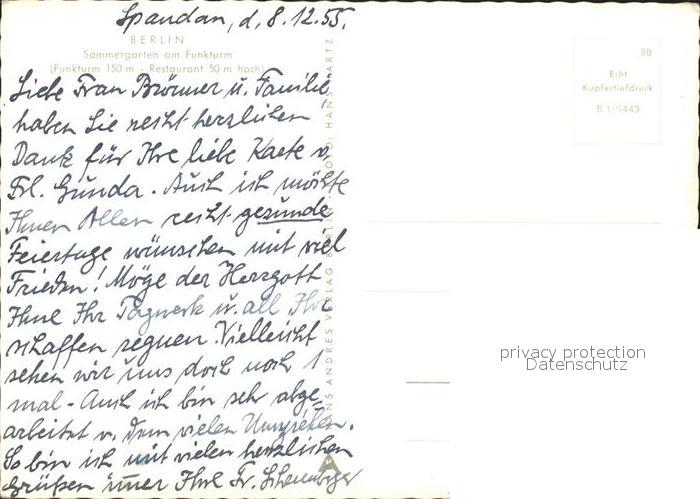 Spandau, d. 8.12.55.
BERLIN
Sommergarten am Funkturm
(Funkturm 150 m - Restaurant 50 m hoch)
Liebe Frau Brönner u. Familie
haben Sie recht herzlichen
Dank für Ihre liebe Karte v.
Frl. Gunda. Auch ich möchte
Ihnen Allen recht gesunde
Feiertage wünschen mit viel
Frieden! Möge der Herrgott
Ihr Tagwerk u. all Ihr
schaffen segnen. Vielleicht
sehen wir uns doch noch 1
mal - Auch ich bin sehr abge
arbeitet v. dem vielen
So bin ich mit vielen herzlichen
Grüßen immer Ihre Fr.
HANS ANDRES VERLAG BERLIN
FOTO: HANS HARTZ
BB
Echt
Kupfertiefdruck
B 1/9443
privacy protection
Datenschutz